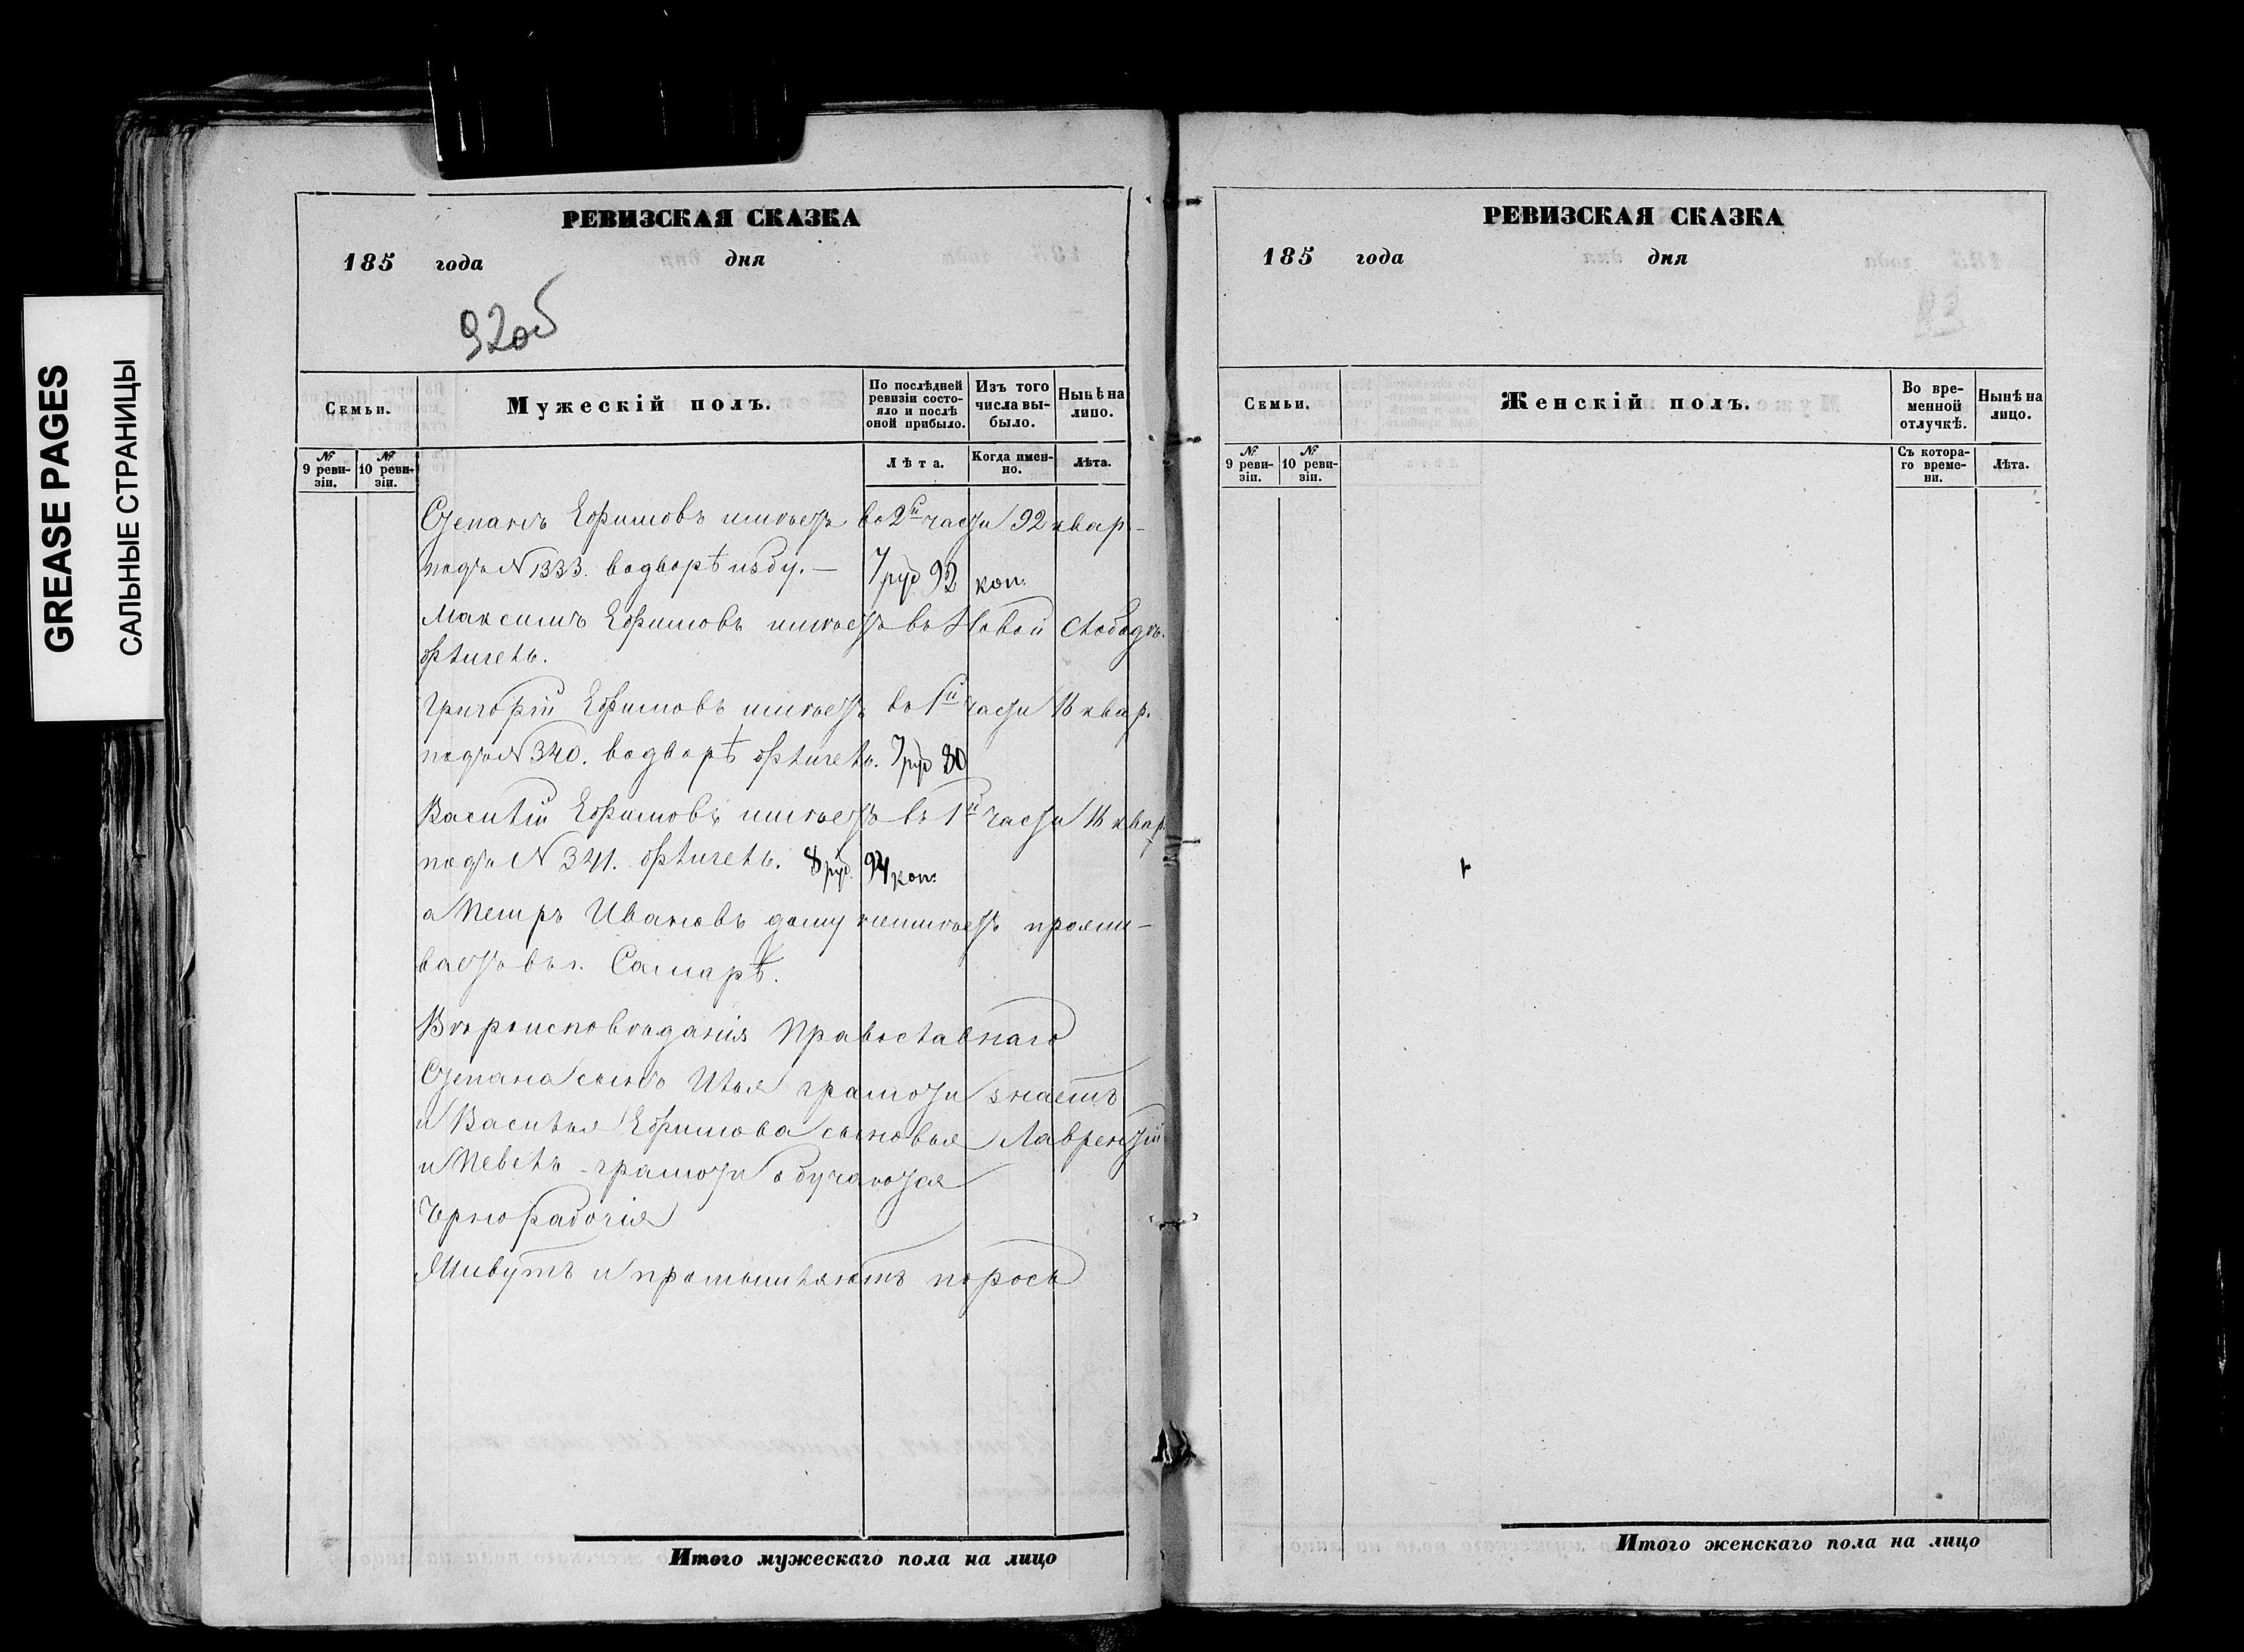 GREASE PAGES
САЛЬНЫЕ СТРАНИЦЫ
РЕВИЗСКАЯ СКАЗКА
185 года дня
92об
Семьи.
Мужескій полъ.
По послѣдней ревизіи состояло и послѣ оной прибыло.
Изъ того числа выбыло.
Нынѣ на лицо.
№ 9 ревизіи.
№ 10 ревизіи.
Лѣта.
Когда именно.
Лѣта.
Степанъ Ефимовъ имѣетъ во 2й части 92 квар-
подъ N 1333. водворѣ избу. — 7 руб 92 коп.
Максимъ Ефимовъ имѣетъ въ Новой Слободкѣ.
флигель.
Григорій Ефимовъ имѣетъ въ 1й части 16 квар.
подъ N 340. водворѣ флигель. 7 руб 80
Василій Ефимовъ имѣетъ въ 1й части 16 квар.
подъ N 341. флигель. 8 руб. 94 коп.
а Петръ Ивановъ дому неимѣетъ прожи-
ваетъ въ г. Самарѣ.
Вѣроисповѣданія Православнаго
Степана сынъ Илья грамоти знаетъ
и Василья Ефимова сыновья Лаврентій
и Павелъ грамоти обучаются
Чернорабочія
Живутъ и промышляютъ порось
Итого мужескаго пола на лицо
РЕВИЗСКАЯ СКАЗКА
185 года дня
93
Семьи.
Женскій полъ.
Во временной отлучкѣ.
Нынѣ на лицо.
№ 9 ревизіи.
№ 10 ревизіи.
Съ котораго времени.
Лѣта.
Итого женскаго пола на лицо